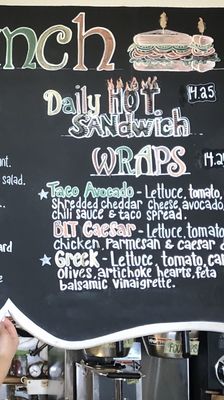 nch
14.25
Daily HOT
SANDWICH
WRAPS
Taco Avocado - Lettuce, tomato,
Shredded cheddar cheese, avocado,
chili sauce & taco spread.
BLT Caesar - Lettuce, tomato
Chicken, Parmesan & caesar
Greek - Lettuce, tomato,
Olives, artichoke hearts, feta
balsamic vinaigrette.
salad.